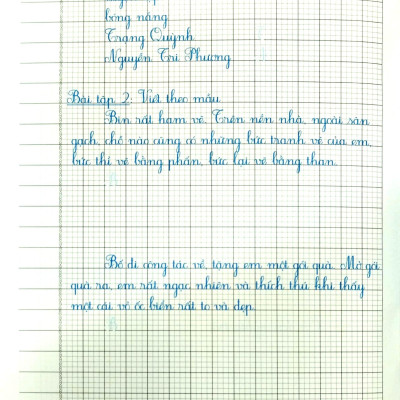 bóng nắng
Trạng Quỳnh
Nguyễn Tri Phương
Bài tập 2: Viết theo mẫu
Bin rất ham vẽ. Trên nền nhà, ngoài sân
gạch, chỗ nào cũng có những bức tranh vẽ của em,
bức thì vẽ bằng phấn, bức lại vẽ bằng than.
Bố đi công tác về, tặng em một gói quà. Mở gói
quà ra, em rất ngạc nhiên và thích thú khi thấy
một cái vỏ ốc biển rất to và đẹp.